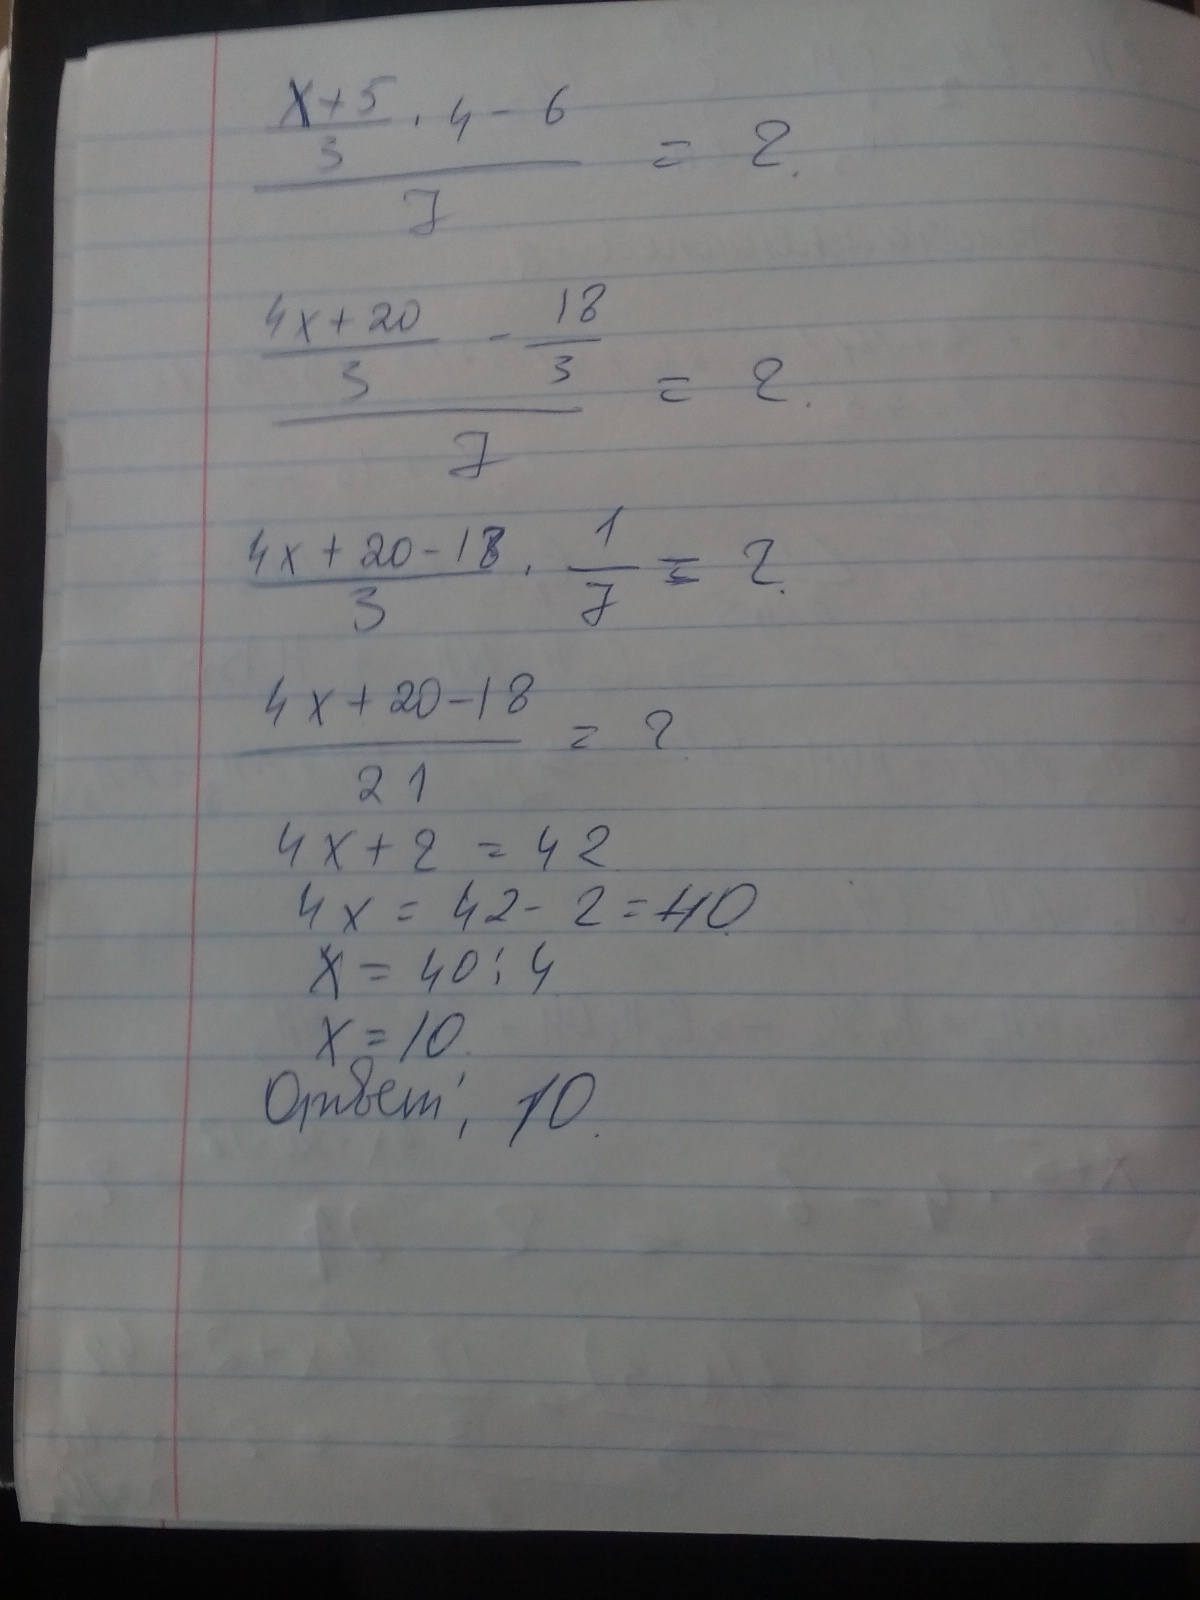 x+5
3
· 4 - 6
7
= 2.
4x+20
3
-
18
3
7
= 2.
4x+20-18
3
·
1
7
= 2.
4x+20-18
21
= 2
4x+2 = 42
4x = 42-2=40
x = 40:4
x = 10.
Ответ: 10.